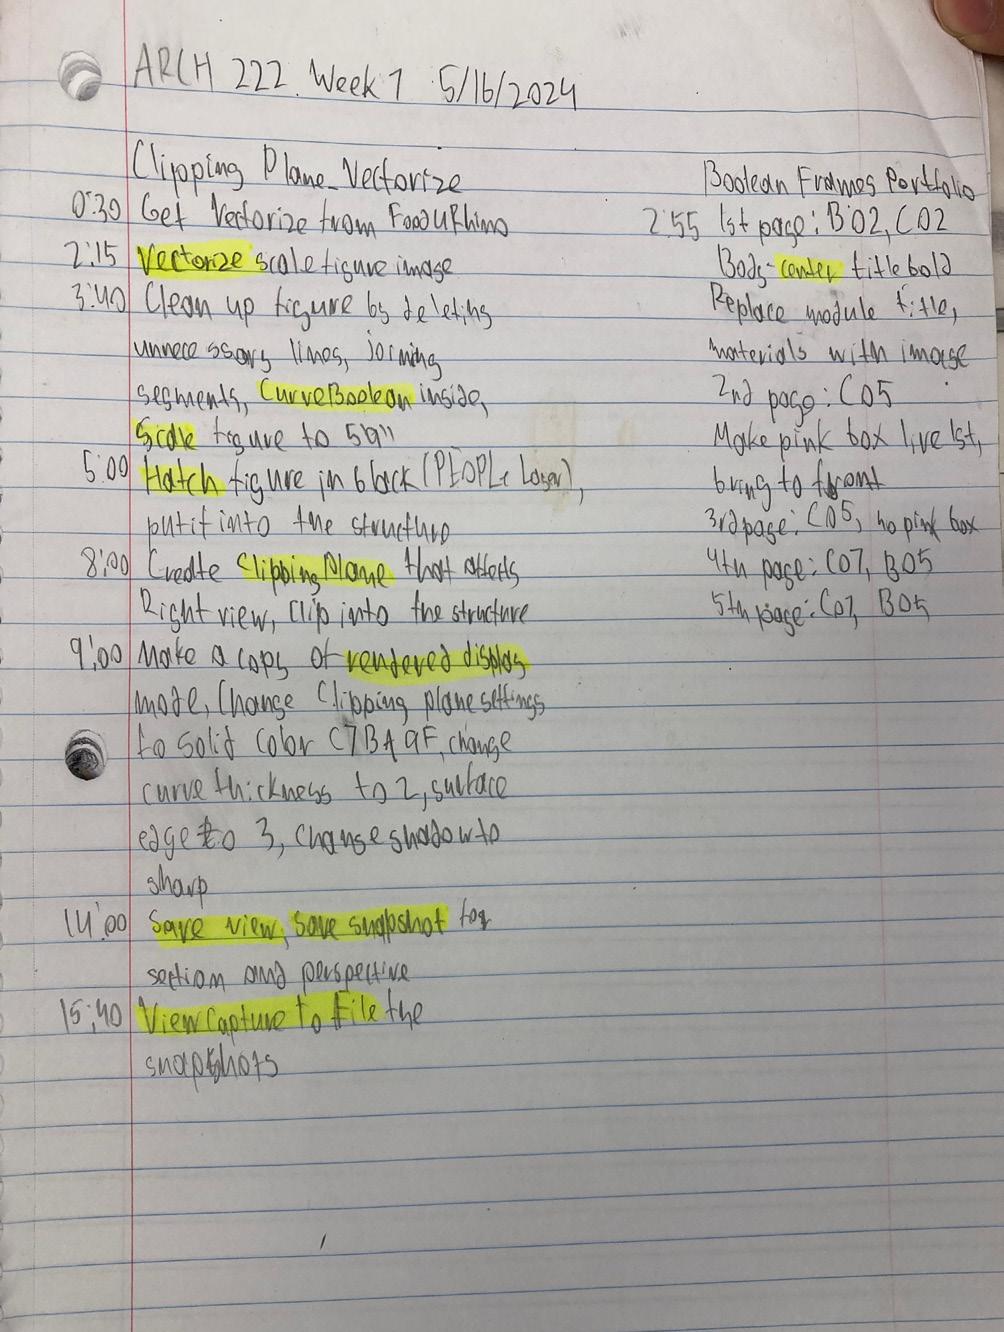 ARCH 222 Week 7 5/16/2024
Clipping Plane_Vectorize
0:30 Get Vectorize from Food4Rhino
2:15 Vectorize scale figure image
3:40 Clean up figure by deleting
unnecessary lines, joining
segments, CurveBoolean inside,
Scale figure to 5'9"
5:00 Hatch figure in black (PEOPLE Layer),
put it into the structure
8:00 Create Clipping Plane that affects
Right view, Clip into the structure
9:00 Make a copy of rendered display
mode, Change Clipping plane settings
to solid color C7BA9F, change
curve thickness to 2, surface
edge to 3, change shadow to
sharp
14:00 Save view, Save snapshot for
section and perspective
15:40 ViewCapture to File the
snapshots
Boolean Frames Portfolio
2:55 1st page: B02, C02
Body-center title bold
Replace module title,
materials with image
2nd page: C05
Make pink box live 1st,
bring to front
3rd page: C05, no pink box
4th page: C07, B05
5th page: C07, B05